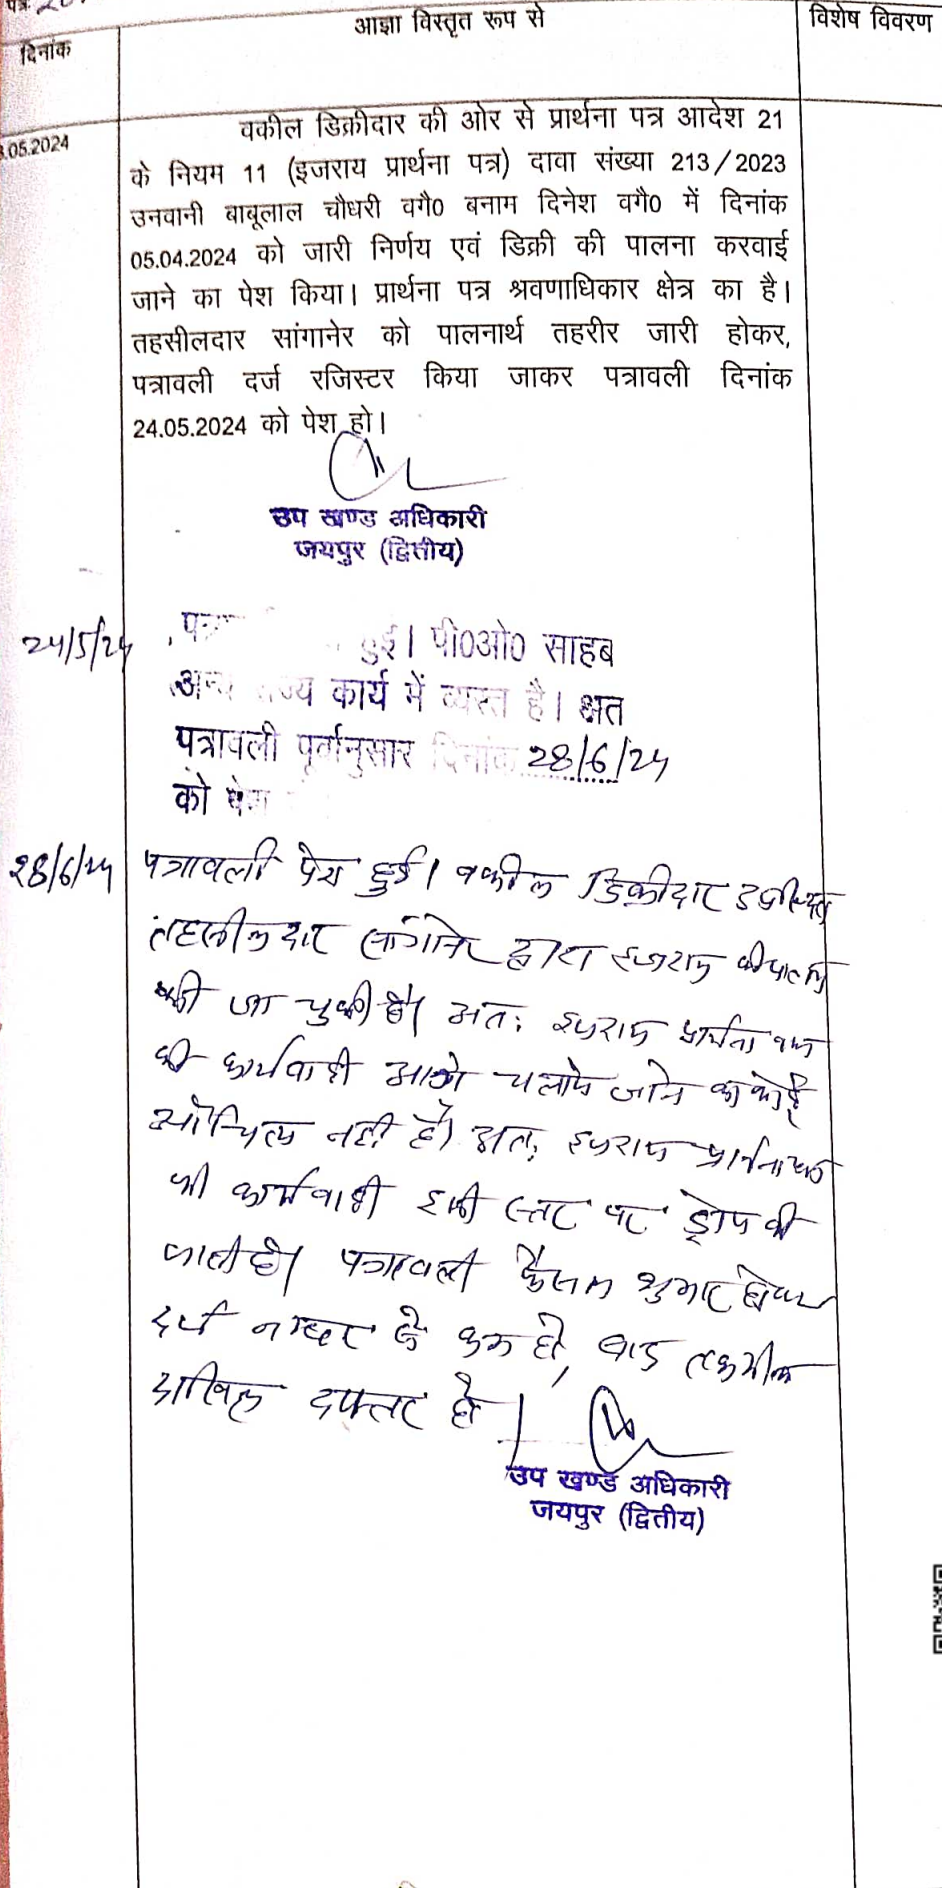 आज्ञा विस्तृत रूप से
विशेष विवरण
दिनांक
.05.2024
वकील डिक्रीदार की ओर से प्रार्थना पत्र आदेश 21
के नियम 11 (इजराय प्रार्थना पत्र) दावा संख्या 213/2023
उनवानी बाबूलाल चौधरी वगै0 बनाम दिनेश वगै0 में दिनांक
05.04.2024 को जारी निर्णय एवं डिक्री की पालना करवाई
जाने का पेश किया। प्रार्थना पत्र श्रवणाधिकार क्षेत्र का है।
तहसीलदार सांगानेर को पालनार्थ तहरीर जारी होकर,
पत्रावली दर्ज रजिस्टर किया जाकर पत्रावली दिनांक
24.05.2024 को पेश हो।
उप खण्ड अधिकारी
जयपुर (द्वितीय)
24/5/24
हुई। पी0ओ0 साहब
अन्य राज्य कार्य में व्यस्त है। अत
पत्रावली पूर्वानुसार दिनांक 28/6/24
को पेश
28/6/24
पत्रावली पेश हुई। वकील डिक्रीदार उपस्थित
तहसीलदार सांगानेर द्वारा इजराय की पालना
की जा चुकी है। अतः इजराय प्रार्थना पत्र
की कार्यवाही आगे चलाये जाने का कोई
औचित्य नहीं है। अतः इजराय प्रार्थना पत्र
की कार्यवाही इसी स्तर पर ड्रोप की
जाती है। पत्रावली फैसल शुमार होकर
दर्ज नम्बर से कम हो, बाद तकमील
दाखिल दफ्तर हो।
उप खण्ड अधिकारी
जयपुर (द्वितीय)